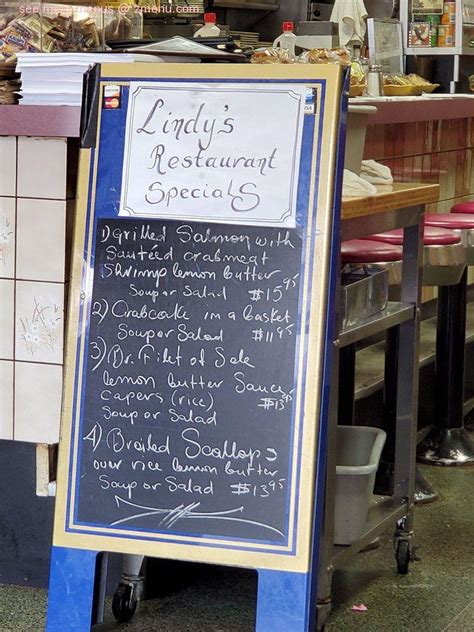 see more menus @ 2menu.com
VISA
Lindy's
Restaurant
Specials
1) Grilled Salmon with
Sauteed crabmeat
Shrimp lemon butter
Soup or Salad $15.95
2) Crabcake in a basket
Soup or Salad $11.95
3) Br. Filet of Sole
lemon butter Sauce
capers (rice) $13.95
Soup or Salad
4) Broiled Scallops
over rice lemon butter
Soup or Salad $13.95